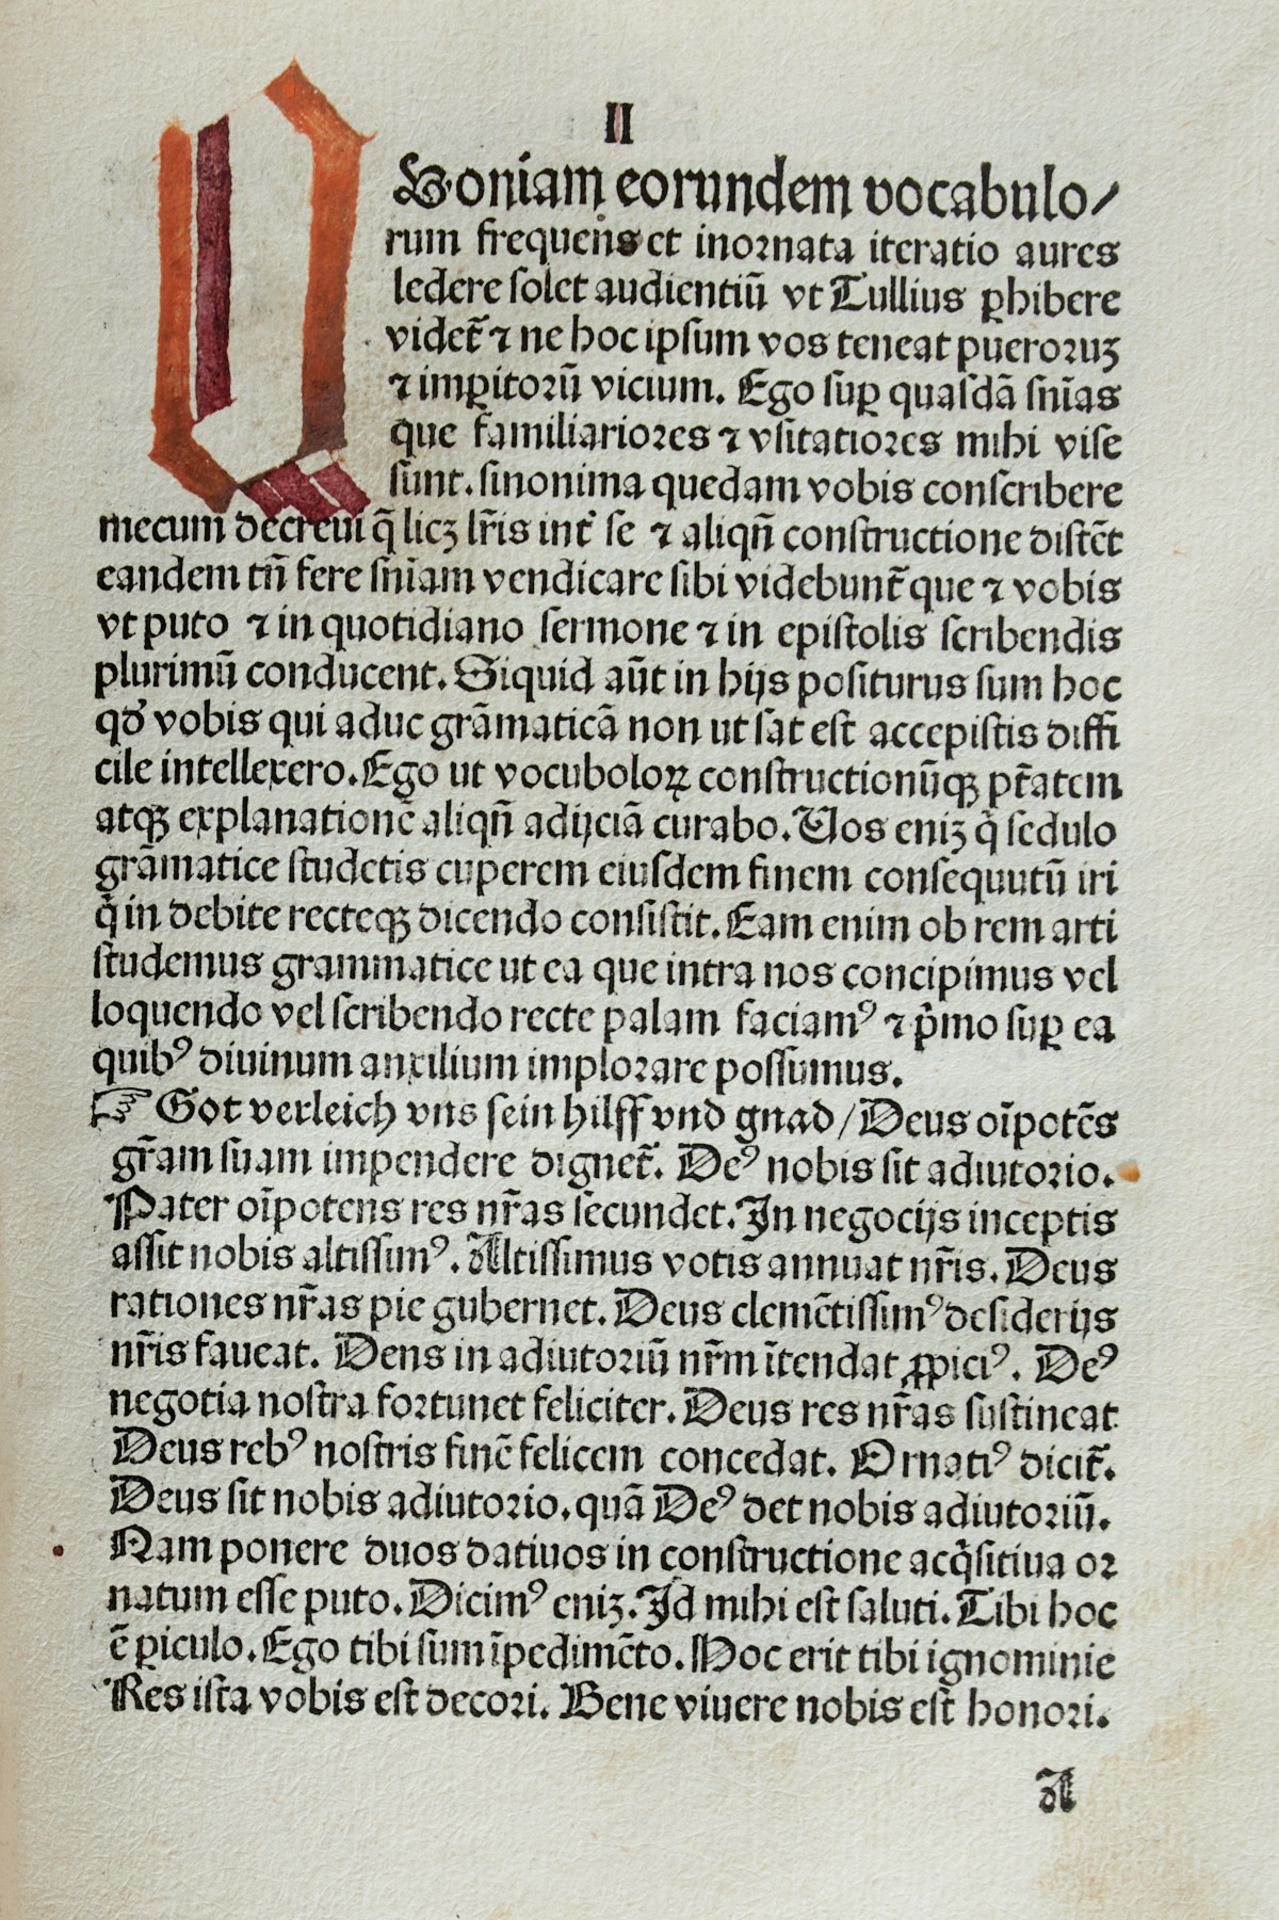 II
Q Voniam eorundem vocabulo/
rum frequens et inornata iteratio aures
ledere solet audientiū vt Tullius ꝑhibere
videt̄ ⁊ ne hoc ipsum vos teneat pueroruꝫ
⁊ imꝑitorū vicium. Ego suꝑ quasdā sn̄ias
que familiariores ⁊ vsitatiores mihi vise
sunt. sinonima quedam vobis conscribere
mecum decreui q̄ licꝫ lr̄is int̄ se ⁊ aliqn̄ constructione distēt
eandem tn̄ fere sn̄iam vendicare sibi videbunt̄ que ⁊ vobis
vt puto ⁊ in quotidiano sermone ⁊ in epistolis scribendis
plurimū conducent. Siquid aūt in hijs positurus sum hoc
qd̓ vobis qui aduc grāmaticā non ut sat est accepistis diffi
cile intellexero. Ego ut vocuboloꝝ constructionūqꝫ pt̄atem
atqꝫ explanationē aliqn̄ adijciā curabo. Uos eniꝫ q̄ sedulo
grāmatice studetis cuperem eiusdem finem consequutū iri
q̄ in debite recteqꝫ dicendo consistit. Eam enim ob rem arti
studemus grammatice ut ea que intra nos concipimus vel
loquendo vel scribendo recte palam faciamꝰ ⁊ p̄mo suꝑ ea
quibꝰ diuinum auxilium implorare possumus.
☞ Got verleich vns sein hilff vnd gnad/Deus oīpotēs
gr̄am suam impendere dignet̄. Deꝰ nobis sit adiutorio.
Pater oīpotens res nr̄as secundet. In negocijs inceptis
assit nobis altissimꝰ. Altissimus votis annuat nr̄is. Deus
rationes nr̄as pie gubernet. Deus clemētissimꝰ desiderijs
nr̄is faueat. Dens in adiutoriū nr̄m ītendat ꝓpiciꝰ. Deꝰ
negotia nostra fortunet feliciter. Deus res nr̄as sustineat
Deus rebꝰ nostris finē felicem concedat. Ornatiꝰ dicit̄.
Deus sit nobis adiutorio. quā Deꝰ det nobis adiutoriū.
Nam ponere duos datiuos in constructione acq̄sitiua or
natum esse puto. Dicimꝰ eniꝫ. Id mihi est saluti. Tibi hoc
ē ꝑiculo. Ego tibi sum īpedimēto. Hoc erit tibi ignominie
Res ista vobis est decori. Bene viuere nobis est honori.
A